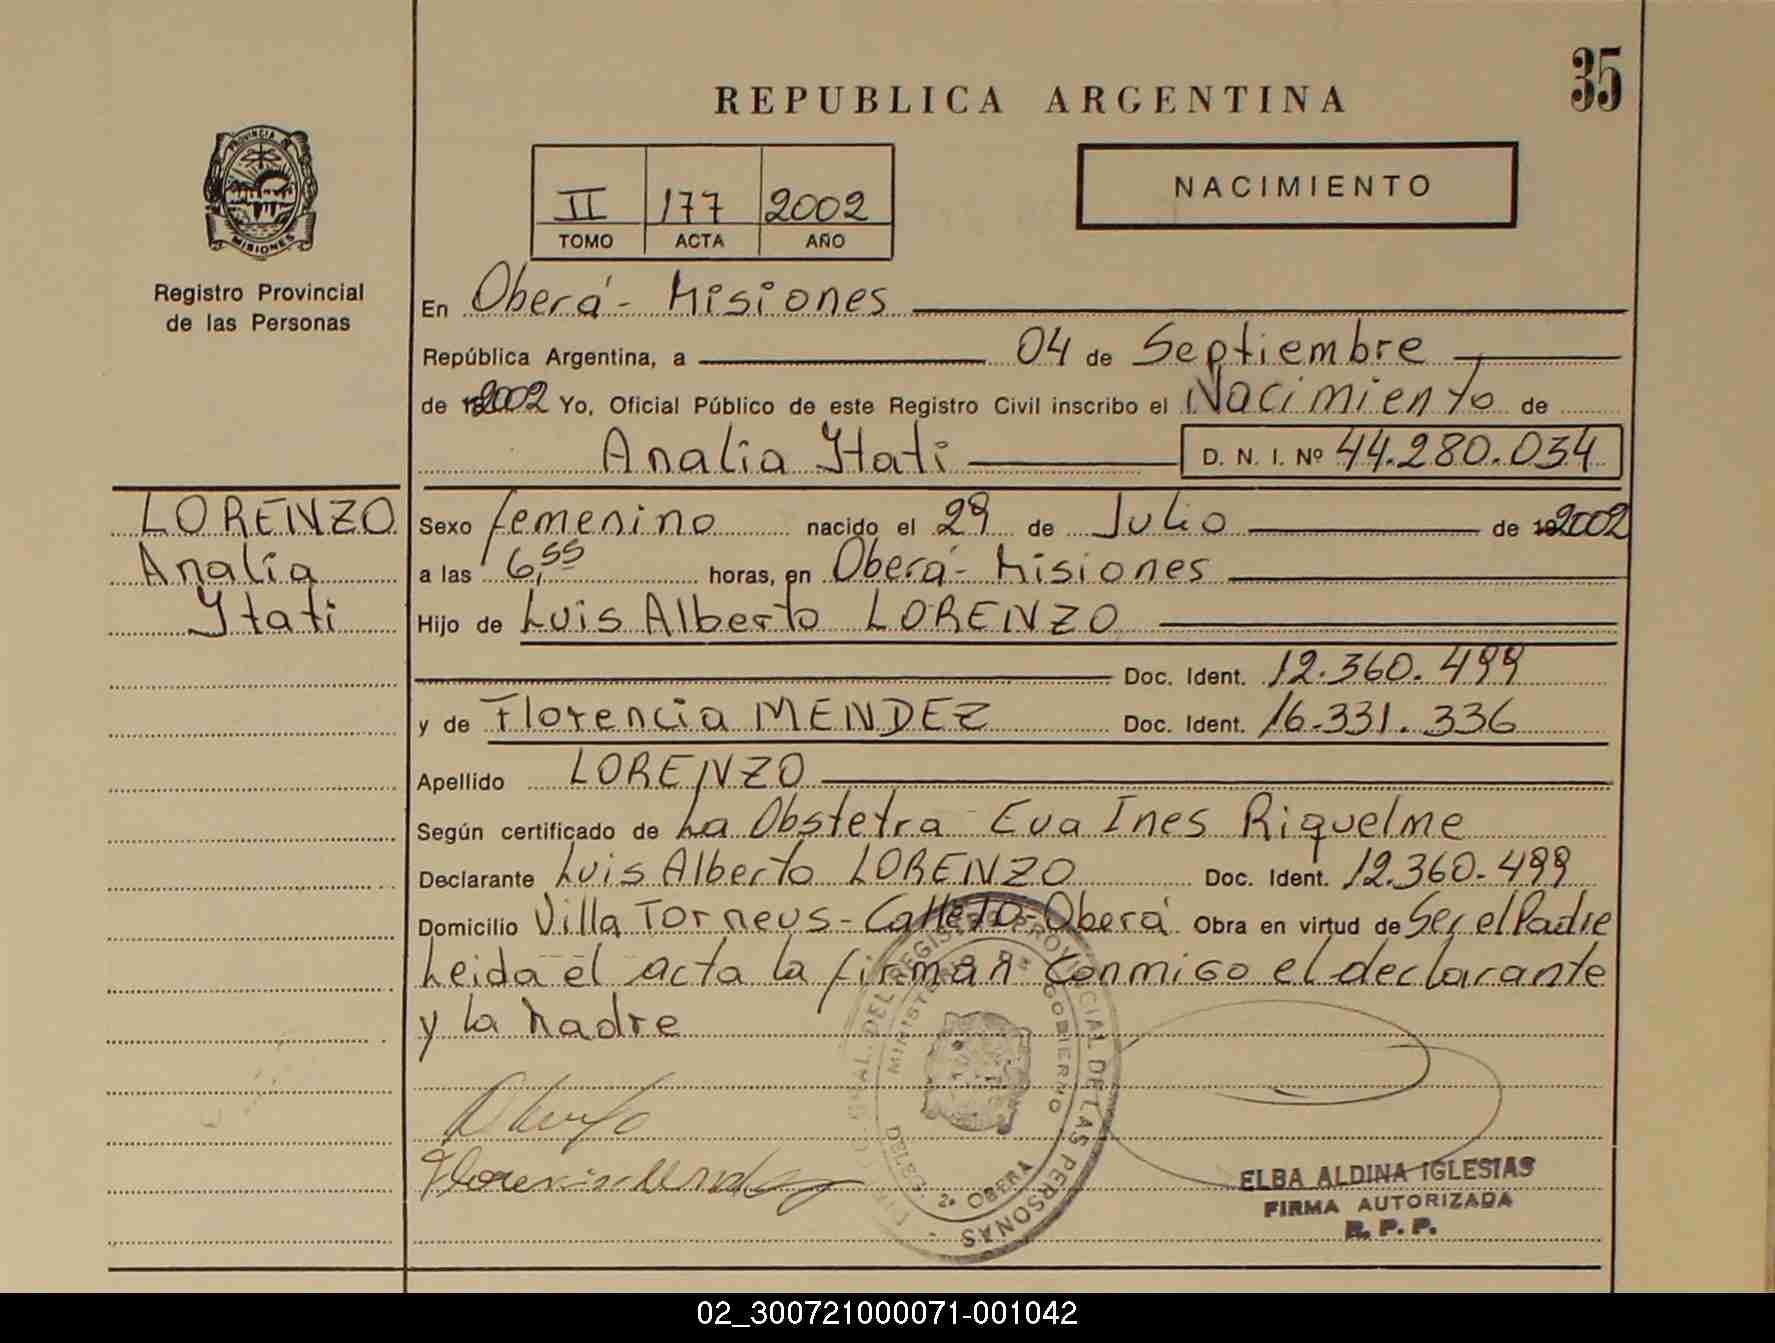 35
REPUBLICA ARGENTINA
PROVINCIA DE
MISIONES
Registro Provincial
de las Personas
II 177 2002
TOMO ACTA AÑO
NACIMIENTO
En Oberá - Misiones
República Argentina, a 04 de Septiembre
de 2002 Yo, Oficial Público de este Registro Civil inscribo el Nacimiento de
Analia Itati D. N. I. Nº 44.280.034
LORENZO
Analia
Itati
Sexo femenino nacido el 29 de Julio de 2002
a las 6,55 horas, en Oberá - Misiones
Hijo de Luis Alberto LORENZO
Doc. Ident. 12.360.499
y de Florencia MENDEZ Doc. Ident. 16.331.336
Apellido LORENZO
Según certificado de La Obstetra Eva Ines Riquelme
Declarante Luis Alberto LORENZO Doc. Ident. 12.360.499
Domicilio Villa Torneus - Oberá Obra en virtud de Ser el Padre
Leida el acta la firman conmigo el declarante
y la Madre
Florencia Mendez
DEL REGISTRO PROVINCIAL DE LAS PERSONAS
MINISTERIO DE GOBIERNO
2ª OBERA
ELBA ALDINA IGLESIAS
FIRMA AUTORIZADA
R. P. P.
02_300721000071-001042